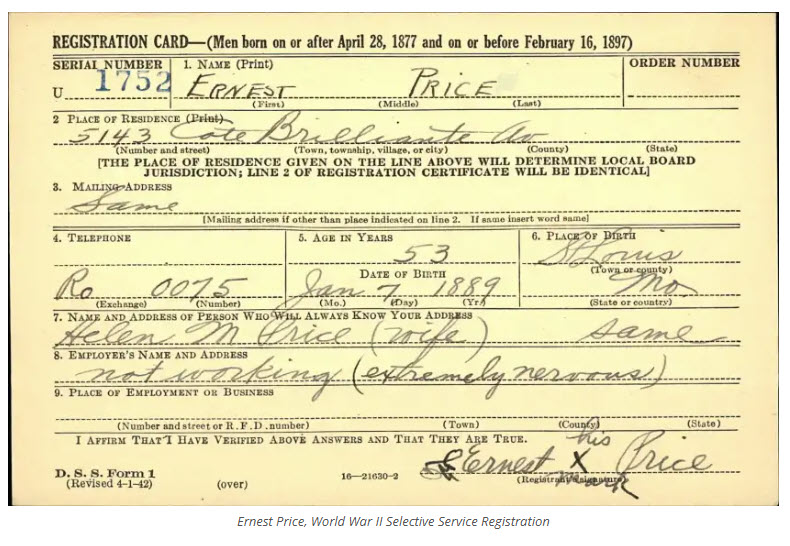 REGISTRATION CARD—(Men born on or after April 28, 1877 and on or before February 16, 1897)
SERIAL NUMBER
1. NAME (Print)
ORDER NUMBER
U 1752
ERNEST PRICE
(First) (Middle) (Last)
2 PLACE OF RESIDENCE (Print)
5143 Cote Brilliante Av
(Number and street) (Town, township, village, or city) (County) (State)
[THE PLACE OF RESIDENCE GIVEN ON THE LINE ABOVE WILL DETERMINE LOCAL BOARD
JURISDICTION; LINE 2 OF REGISTRATION CERTIFICATE WILL BE IDENTICAL]
3. MAILING ADDRESS
Same
[Mailing address if other than place indicated on line 2. If same insert word same]
4. TELEPHONE
5. AGE IN YEARS
6. PLACE OF BIRTH
53
St Louis
DATE OF BIRTH
(Town or county)
Ro 0075
Jan 7 1889
Mo.
(Exchange) (Number)
(Mo.) (Day) (Yr.)
(State or country)
7. NAME AND ADDRESS OF PERSON WHO WILL ALWAYS KNOW YOUR ADDRESS
Helen M Price (wife) same
8. EMPLOYER'S NAME AND ADDRESS
not working (extremely nervous)
9. PLACE OF EMPLOYMENT OR BUSINESS
(Number and street or R. F. D. number) (Town) (County) (State)
I AFFIRM THAT I HAVE VERIFIED ABOVE ANSWERS AND THAT THEY ARE TRUE.
his
Ernest X Price
D. S. S. Form 1
(Revised 4-1-42) (over)
16—21630-2
(Registrant's signature)
mark
Ernest Price, World War II Selective Service Registration